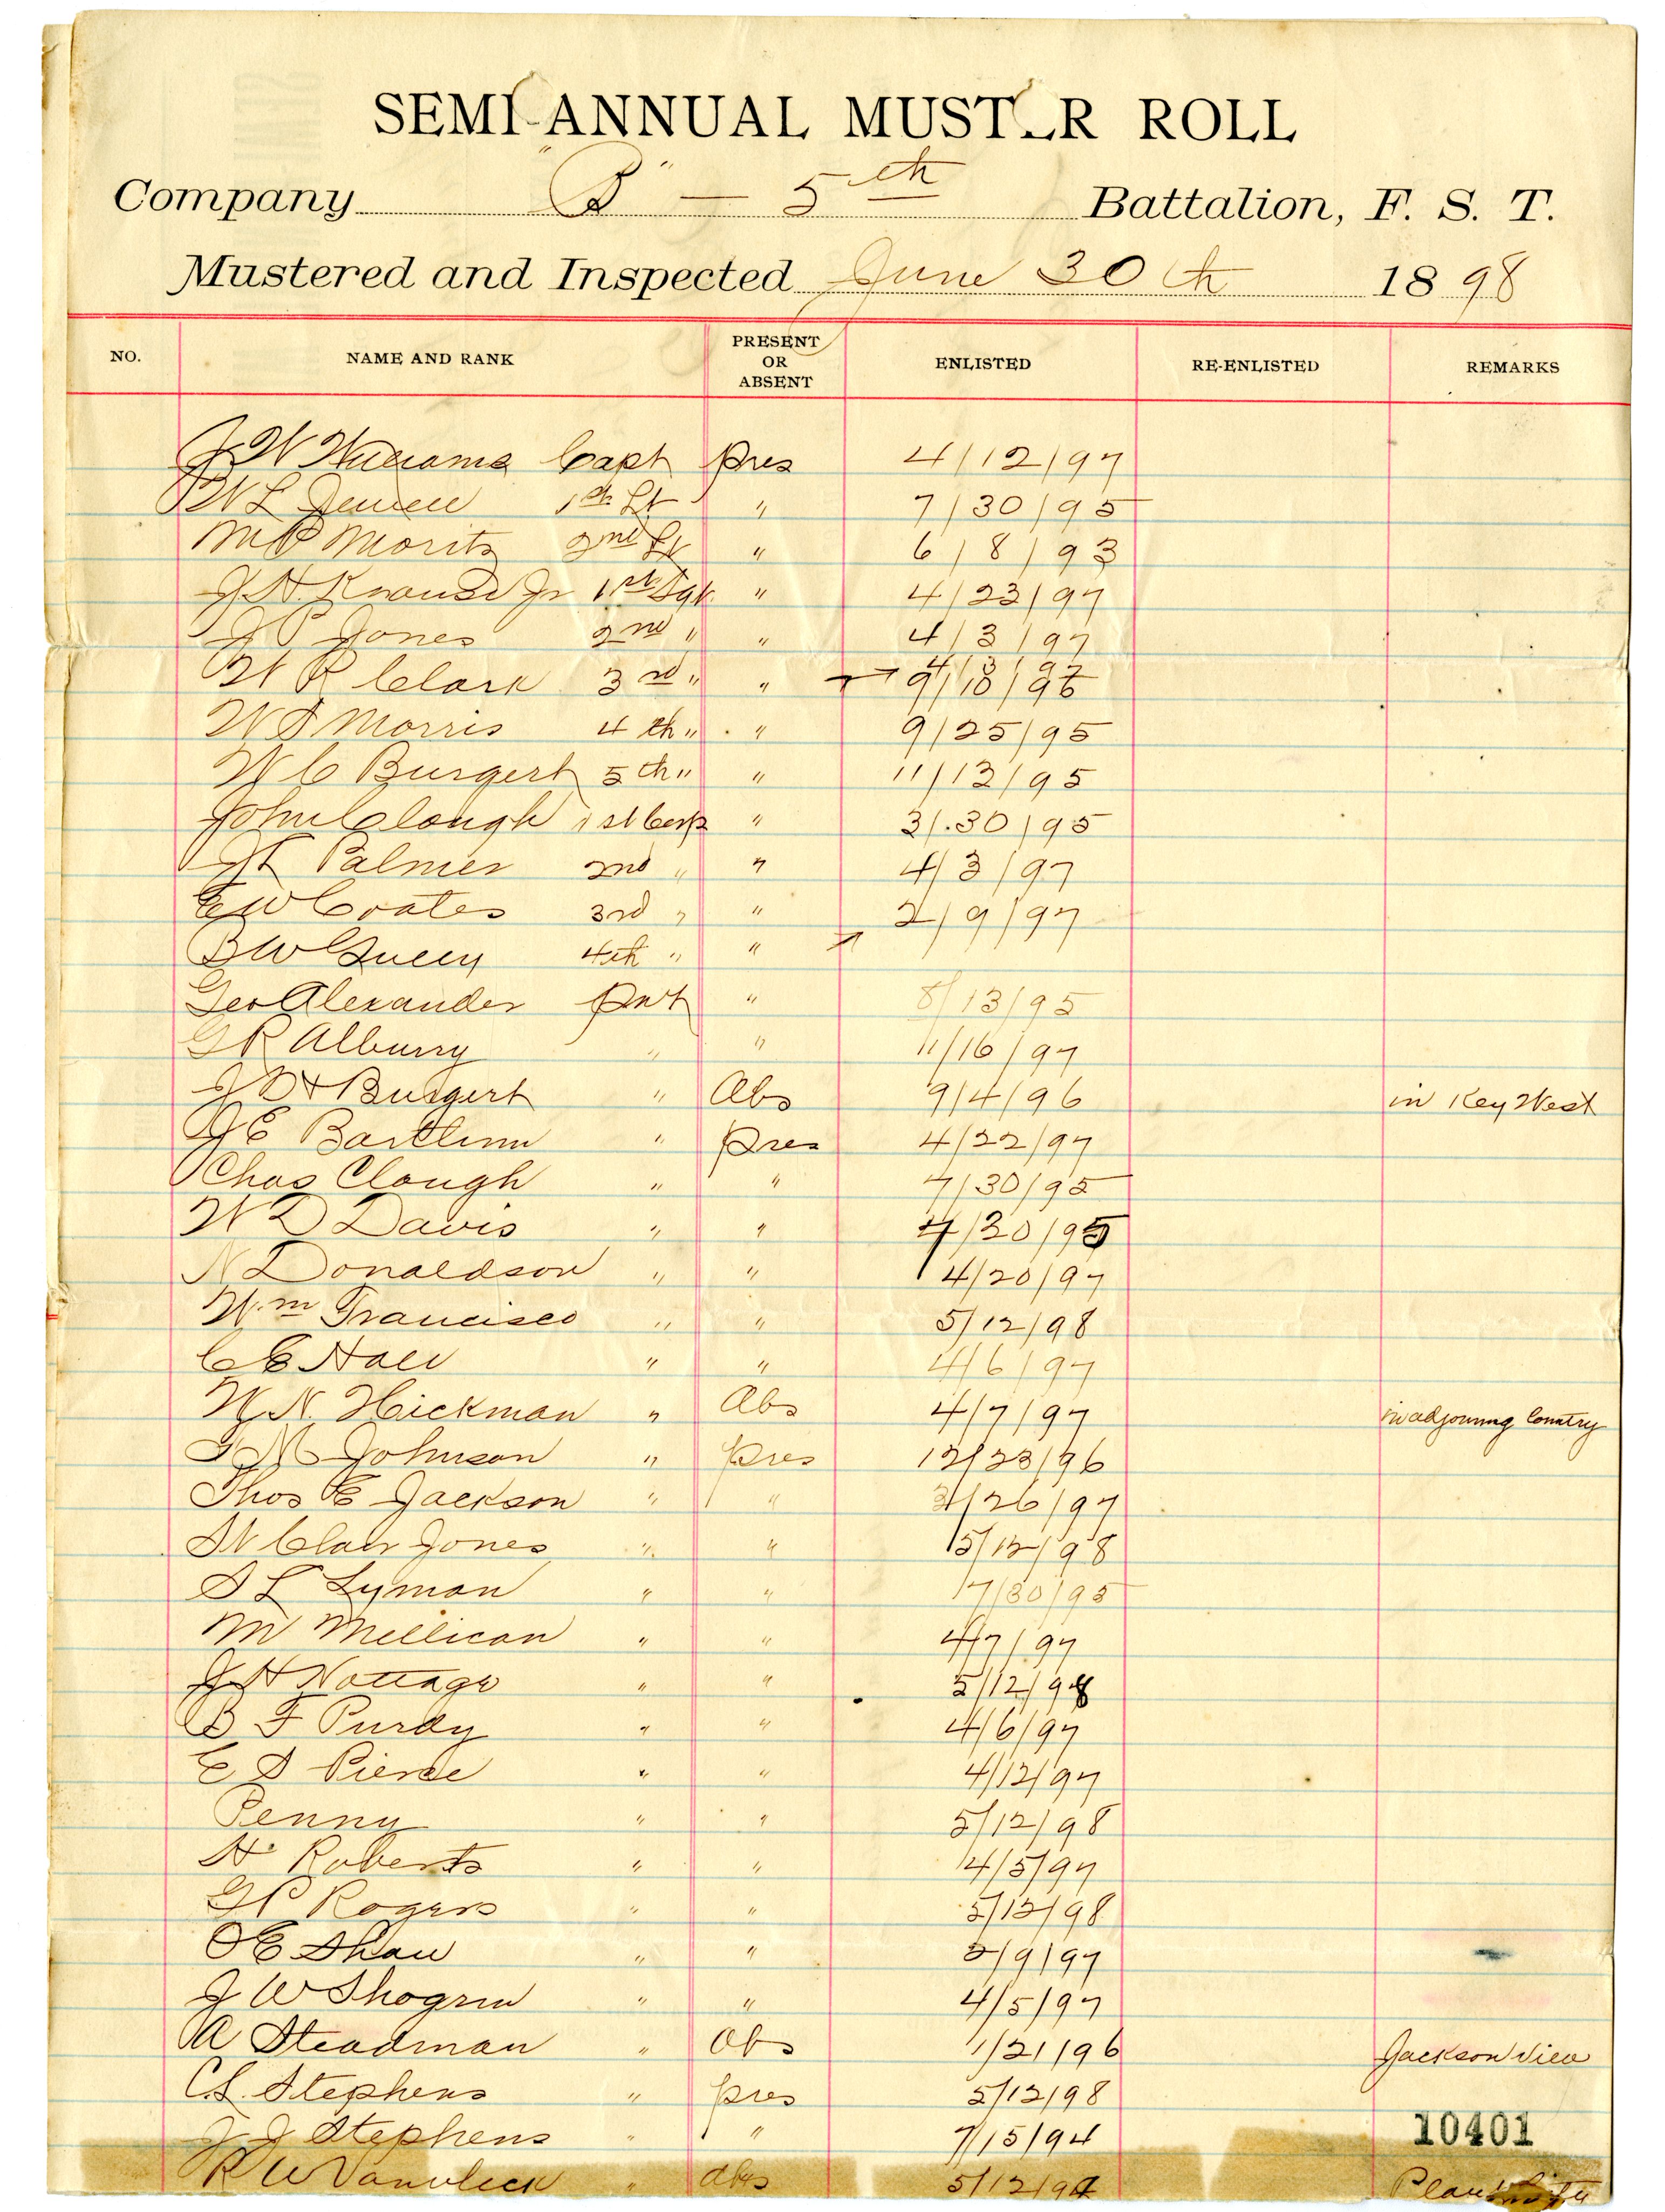 SEMI-ANNUAL MUSTER ROLL
Company "B" — 5th Battalion, F. S. T.
Mustered and Inspected June 30th 1898
NO. NAME AND RANK PRESENT OR ABSENT ENLISTED RE-ENLISTED REMARKS
J W Williams Capt pres 4/12/97
W L Jewell 1st Lt " 7/30/95
M P Moritz 2nd Lt " 6/8/93
J. H. Knause Jr 1st Sgt. " 4/23/97
J P Jones 2nd " " 4/3/97
W R Clark 3rd " "
W S Morris 4th " " 9/25/95
W C Burgert 5th " " 11/13/95
John Clough 1st Corp " 3/30/95
Palmer 2nd " " 4/3/97
E W Coates 3rd " " 2/9/97
B W Guery 4th " "
Geo Alexander Pvt " 8/13/95
G R Alburry " " 11/16/97
J D H Burgert " Abs 9/4/96 in Key West
J E Bartlum " pres 4/22/97
Chas Clough " " 7/30/95
W D Davis " " 4/30/95
N Donaldson " " 4/20/97
Wm Francisco " " 5/12/98
C E Hall " " 4/6/97
W. N. Hickman " Abs 4/7/97 in adjoining Country
M Johnson " pres 12/23/96
Thos E Jackson " " /26/97
St Clair Jones " " 5/12/98
S L Lyman " " 7/30/95
M Mellican " " 4/7/97
J H Nottage " " 5/12/98
B F Purdy " " 4/6/97
E S Pierce " " 4/12/97
Penny " " 5/12/98
H. Roberts " " 4/5/97
G P Rogers " " 5/12/98
O E Shaw " " 2/9/97
J W Shogren " " 4/5/97
A Steadman " abs 1/21/96 Jacksonville
C. L. Stephens " pres 5/12/98
J J Stephens " " 7/15/94
10401
R W Vanvleck " abs 5/12/97 Plant City